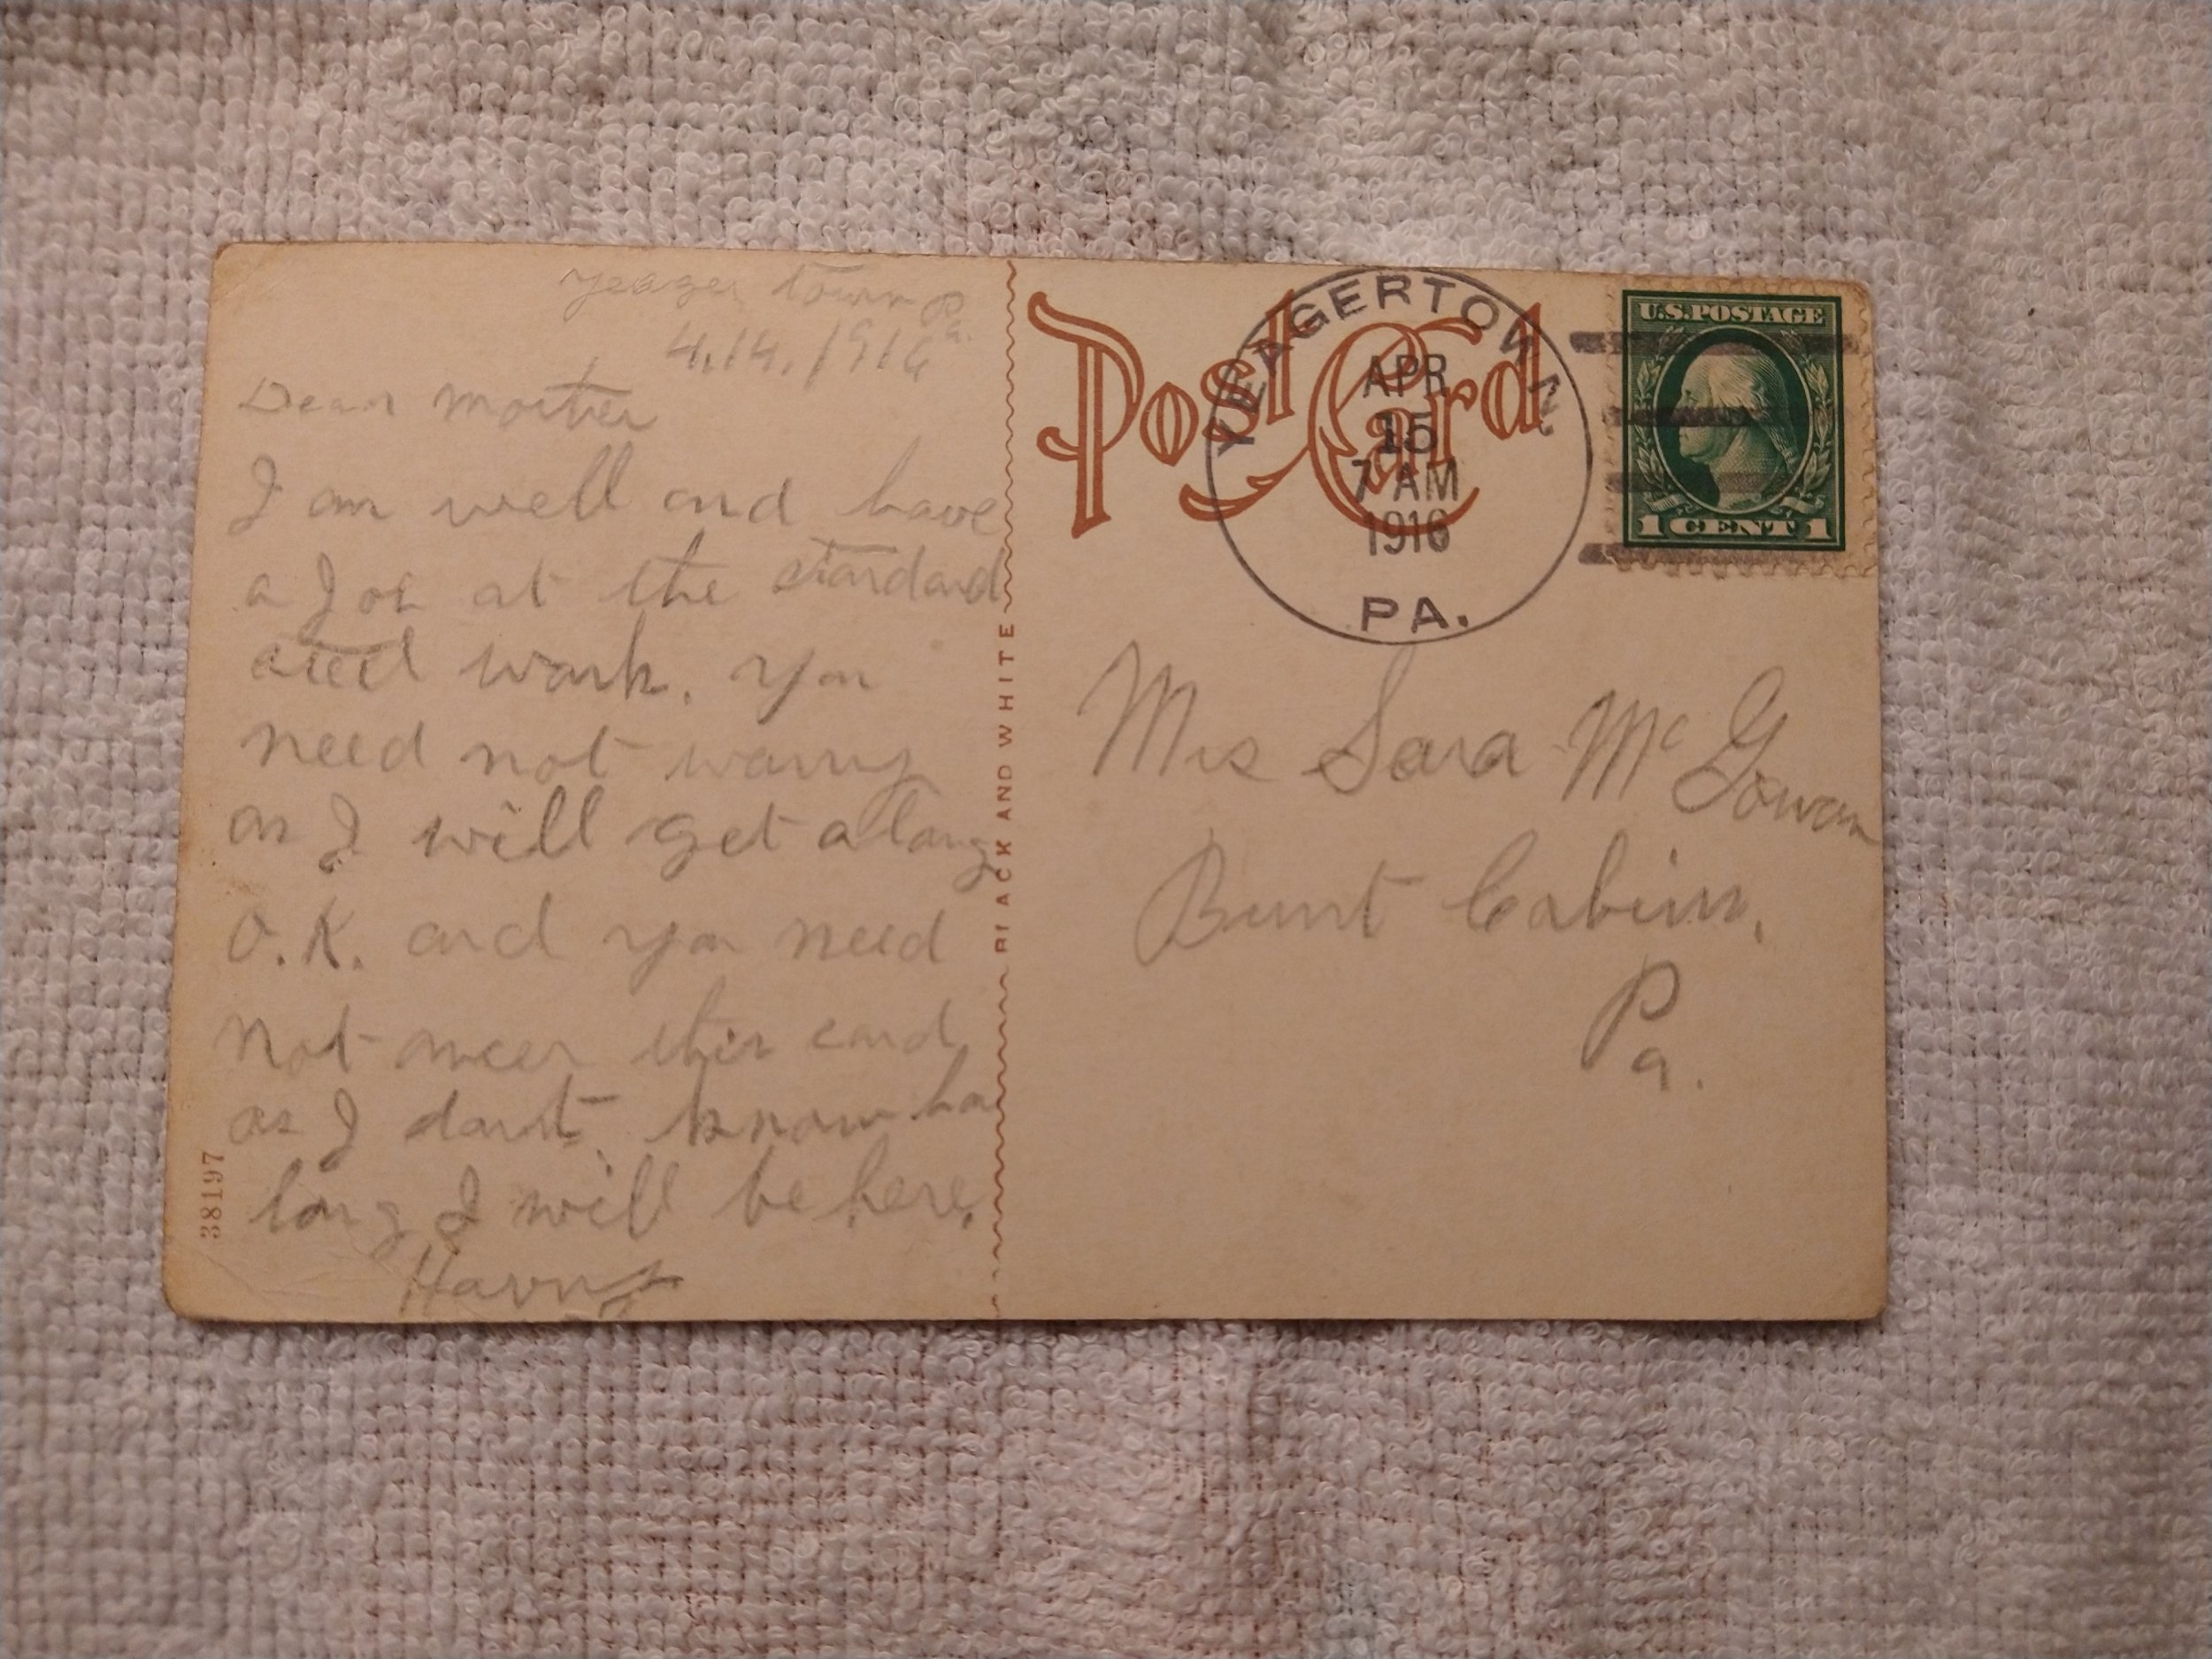 Yeager town Pa.
4.14.1916
Dear Mother
I am well and have
a Job at the standard
steel work. You
need not worry
as I will get along
O.K. and you need
not answer this card
as I don't know how
long I will be here.
Harry
38197
BLACK AND WHITE
Post Card
YEAGERTOWN
APR
15
7 AM
1916
PA.
U.S. POSTAGE
1 CENT 1
Mrs Sara McGowan
Burnt Cabins,
Pa.